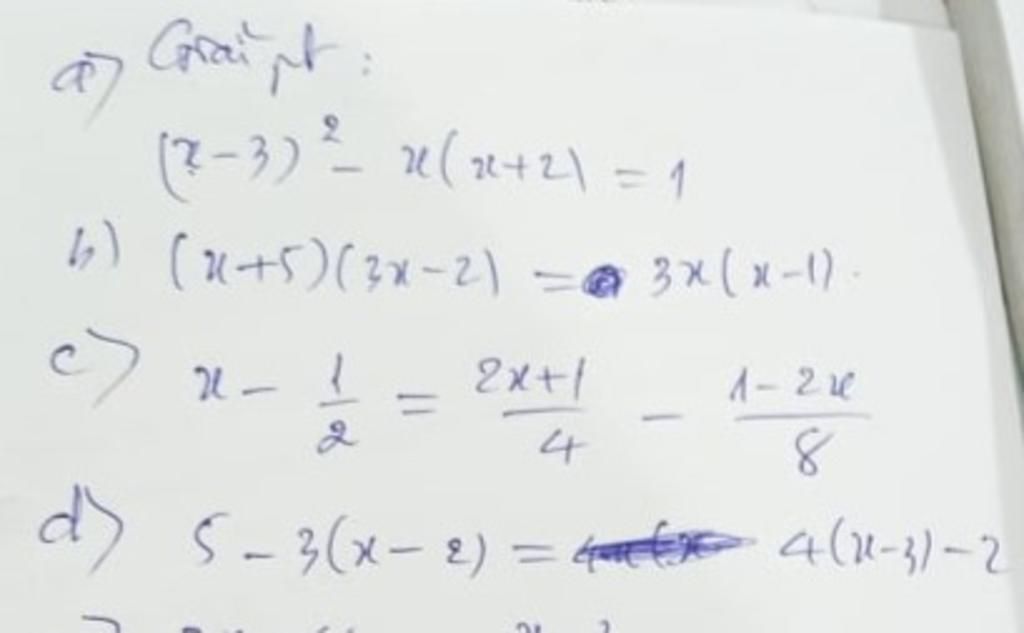 a) Giải pt:
(x-3)² - x(x+2) = 1
b) (x+5)(3x-2) = 3x(x-1).
c) x - 1/2 = (2x+1)/4 - (1-2x)/8
d) 5 - 3(x-2) = 4(x-3)-2